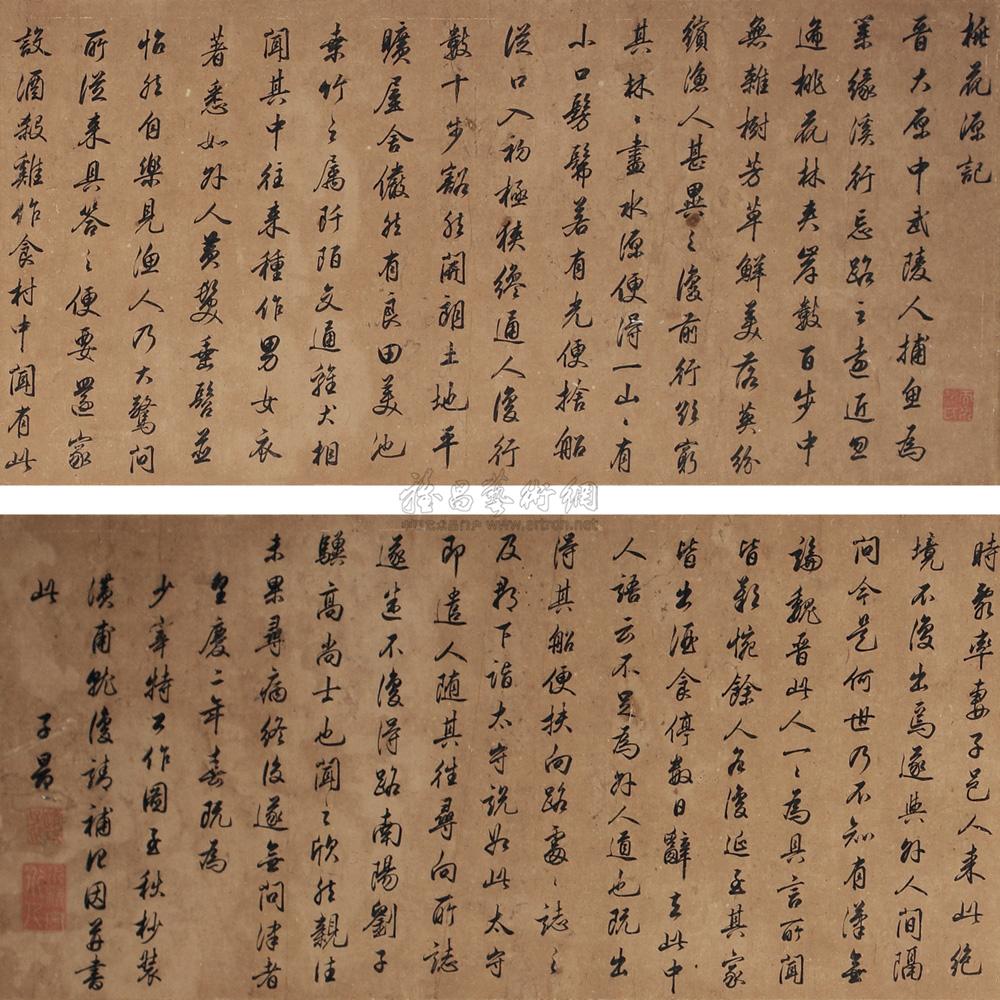 桃花源記
晉大原中武陵人捕魚為
業緣溪行忘路之遠近忽
逢桃花林夾岸數百步中
無雜樹芳草鮮美落英紛
繽漁人甚異之復前行欲窮
其林林盡水源便得一山山有
小口髣髴若有光便捨船
從口入初極狹纔通人復行
數十步豁然開朗土地平
曠屋舍儼然有良田美池
桑竹之屬阡陌交通雞犬相
聞其中往來種作男女衣
著悉如外人黃髮垂髫並
怡然自樂見漁人乃大驚問
所從來具答之便要還家
設酒殺雞作食村中聞有此
雅昌藝術網
www.artron.net
時亂率妻子邑人來此絕
境不復出焉遂與外人間隔
問今是何世乃不知有漢無
論魏晉此人一一為具言所聞
皆歎惋餘人各復延至其家
皆出酒食停數日辭去此中
人語云不足為外人道也既出
得其船便扶向路處處誌之
及郡下詣太守說如此太守
即遣人隨其往尋向所誌
遂迷不復得路南陽劉子
驥高尚士也聞之欣然親往
未果尋病終後遂無問津者
皇慶二年春既為
少宰特公作圖至秋杪裝
潢甫就復請補記因並書
此 子昂